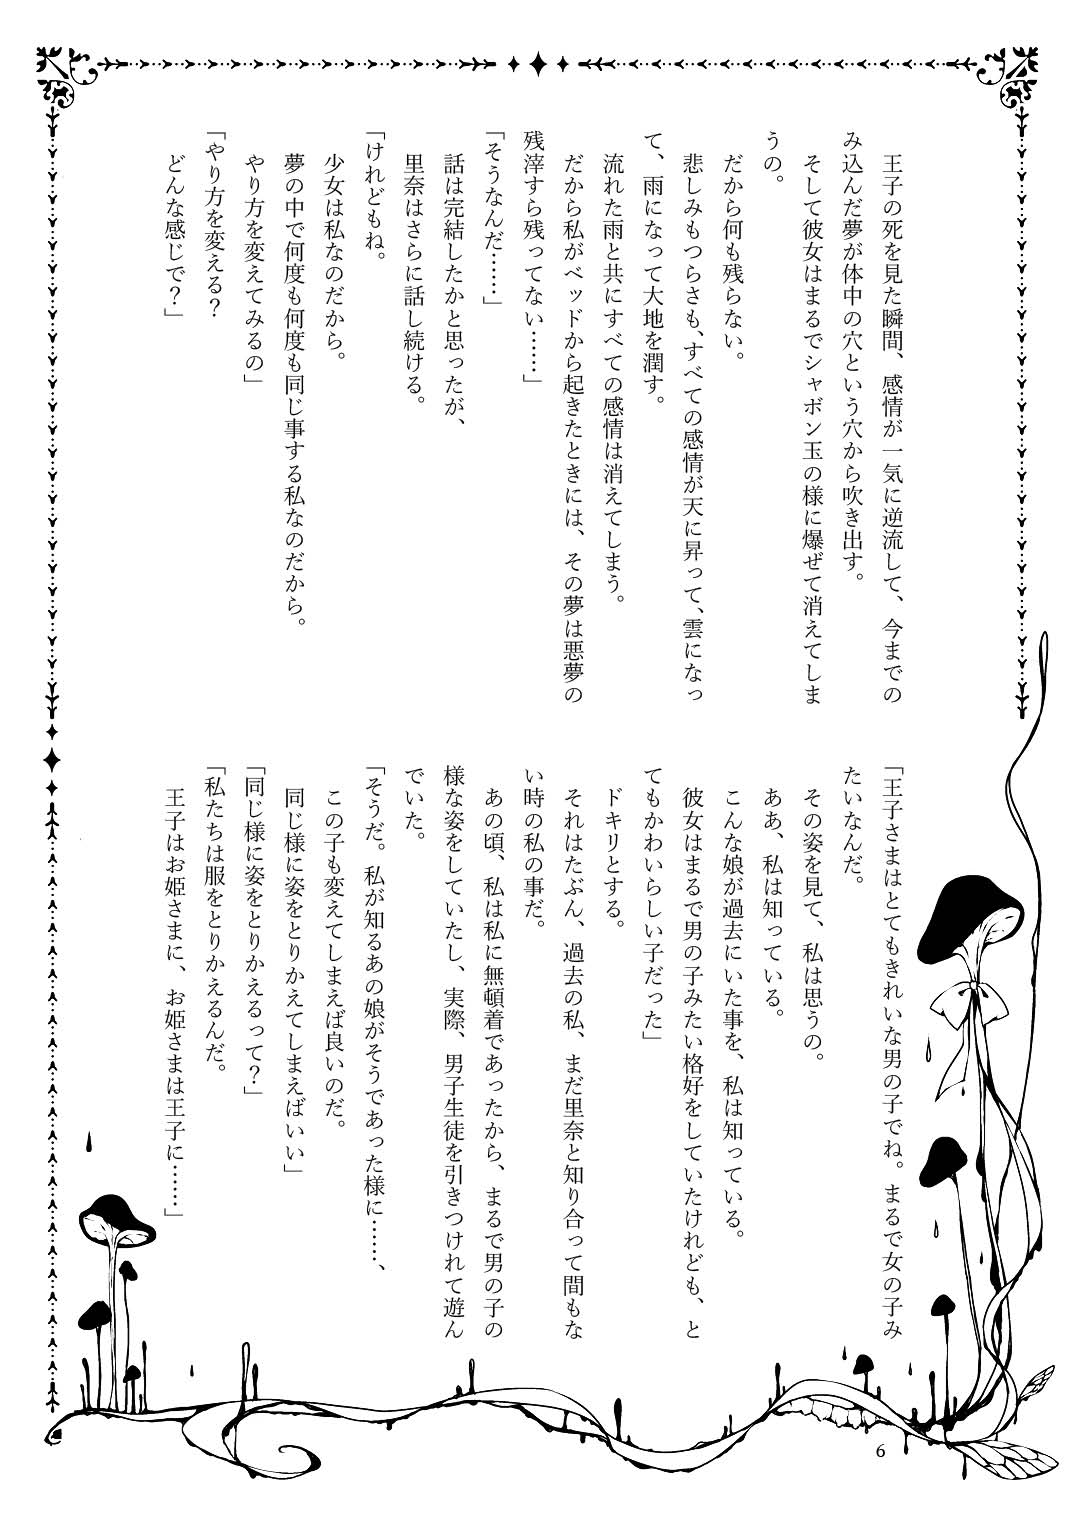 王子の死を見た瞬間、感情が一気に逆流して、今までの
み込んだ夢が体中の穴という穴から吹き出す。
　そして彼女はまるでシャボン玉の様に爆ぜて消えてしま
うの。
　だから何も残らない。
　悲しみもつらさも、すべての感情が天に昇って、雲になっ
て、雨になって大地を潤す。
　流れた雨と共にすべての感情は消えてしまう。
　だから私がベッドから起きたときには、その夢は悪夢の
残滓すら残ってない……」
「そうなんだ……」
　話は完結したかと思ったが、
　里奈はさらに話し続ける。
「けれどもね。
　少女は私なのだから。
　夢の中で何度も何度も同じ事する私なのだから。
　やり方を変えてみるの」
「やり方を変える？
　どんな感じで？」
「王子さまはとてもきれいな男の子でね。まるで女の子み
たいなんだ。
　その姿を見て、私は思うの。
　ああ、私は知っている。
　こんな娘が過去にいた事を、私は知っている。
　彼女はまるで男の子みたい格好をしていたけれども、と
てもかわいらしい子だった」
　ドキリとする。
　それはたぶん、過去の私、まだ里奈と知り合って間もな
い時の私の事だ。
　あの頃、私は私に無頓着であったから、まるで男の子の
様な姿をしていたし、実際、男子生徒を引きつけれて遊ん
でいた。
「そうだ。私が知るあの娘がそうであった様に……、
　この子も変えてしまえば良いのだ。
　同じ様に姿をとりかえてしまえばいい」
「同じ様に姿をとりかえるって？」
「私たちは服をとりかえるんだ。
　王子はお姫さまに、お姫さまは王子に……」
6